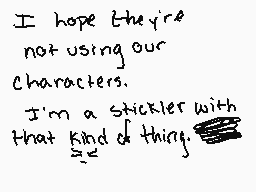 I hope they're
not using our
characters.
I'm a stickler with
that kind of thing.